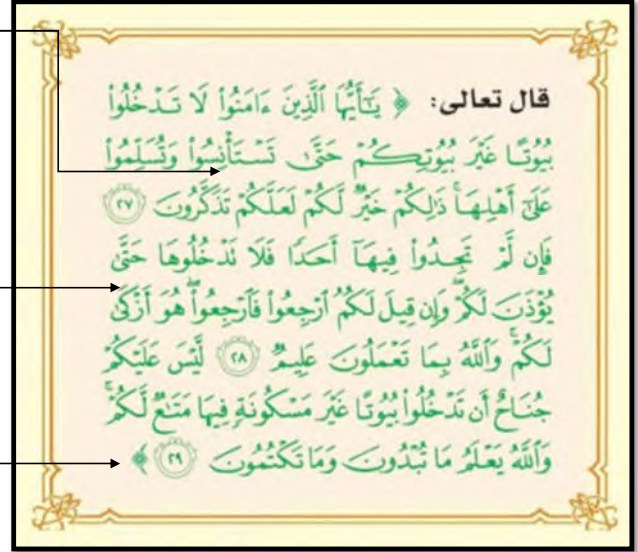 قال تعالى: ﴿ يَـٰٓأَيُّهَا ٱلَّذِينَ ءَامَنُوا۟ لَا تَدْخُلُوا۟
بُيُوتًا غَيْرَ بُيُوتِكُمْ حَتَّىٰ تَسْتَأْنِسُوا۟ وَتُسَلِّمُوا۟
عَلَىٰٓ أَهْلِهَا ۚ ذَٰلِكُمْ خَيْرٌ لَّكُمْ لَعَلَّكُمْ تَذَكَّرُونَ ٢٧
فَإِن لَّمْ تَجِدُوا۟ فِيهَآ أَحَدًا فَلَا تَدْخُلُوهَا حَتَّىٰ
يُؤْذَنَ لَكُمْ ۖ وَإِن قِيلَ لَكُمُ ٱرْجِعُوا۟ فَٱرْجِعُوا۟ ۖ هُوَ أَزْكَىٰ
لَكُمْ ۚ وَٱللَّهُ بِمَا تَعْمَلُونَ عَلِيمٌ ٢٨ لَّيْسَ عَلَيْكُمْ
جُنَاحٌ أَن تَدْخُلُوا۟ بُيُوتًا غَيْرَ مَسْكُونَةٍ فِيهَا مَتَـٰعٌ لَّكُمْ ۚ
وَٱللَّهُ يَعْلَمُ مَا تُبْدُونَ وَمَا تَكْتُمُونَ ٢٩ ﴾